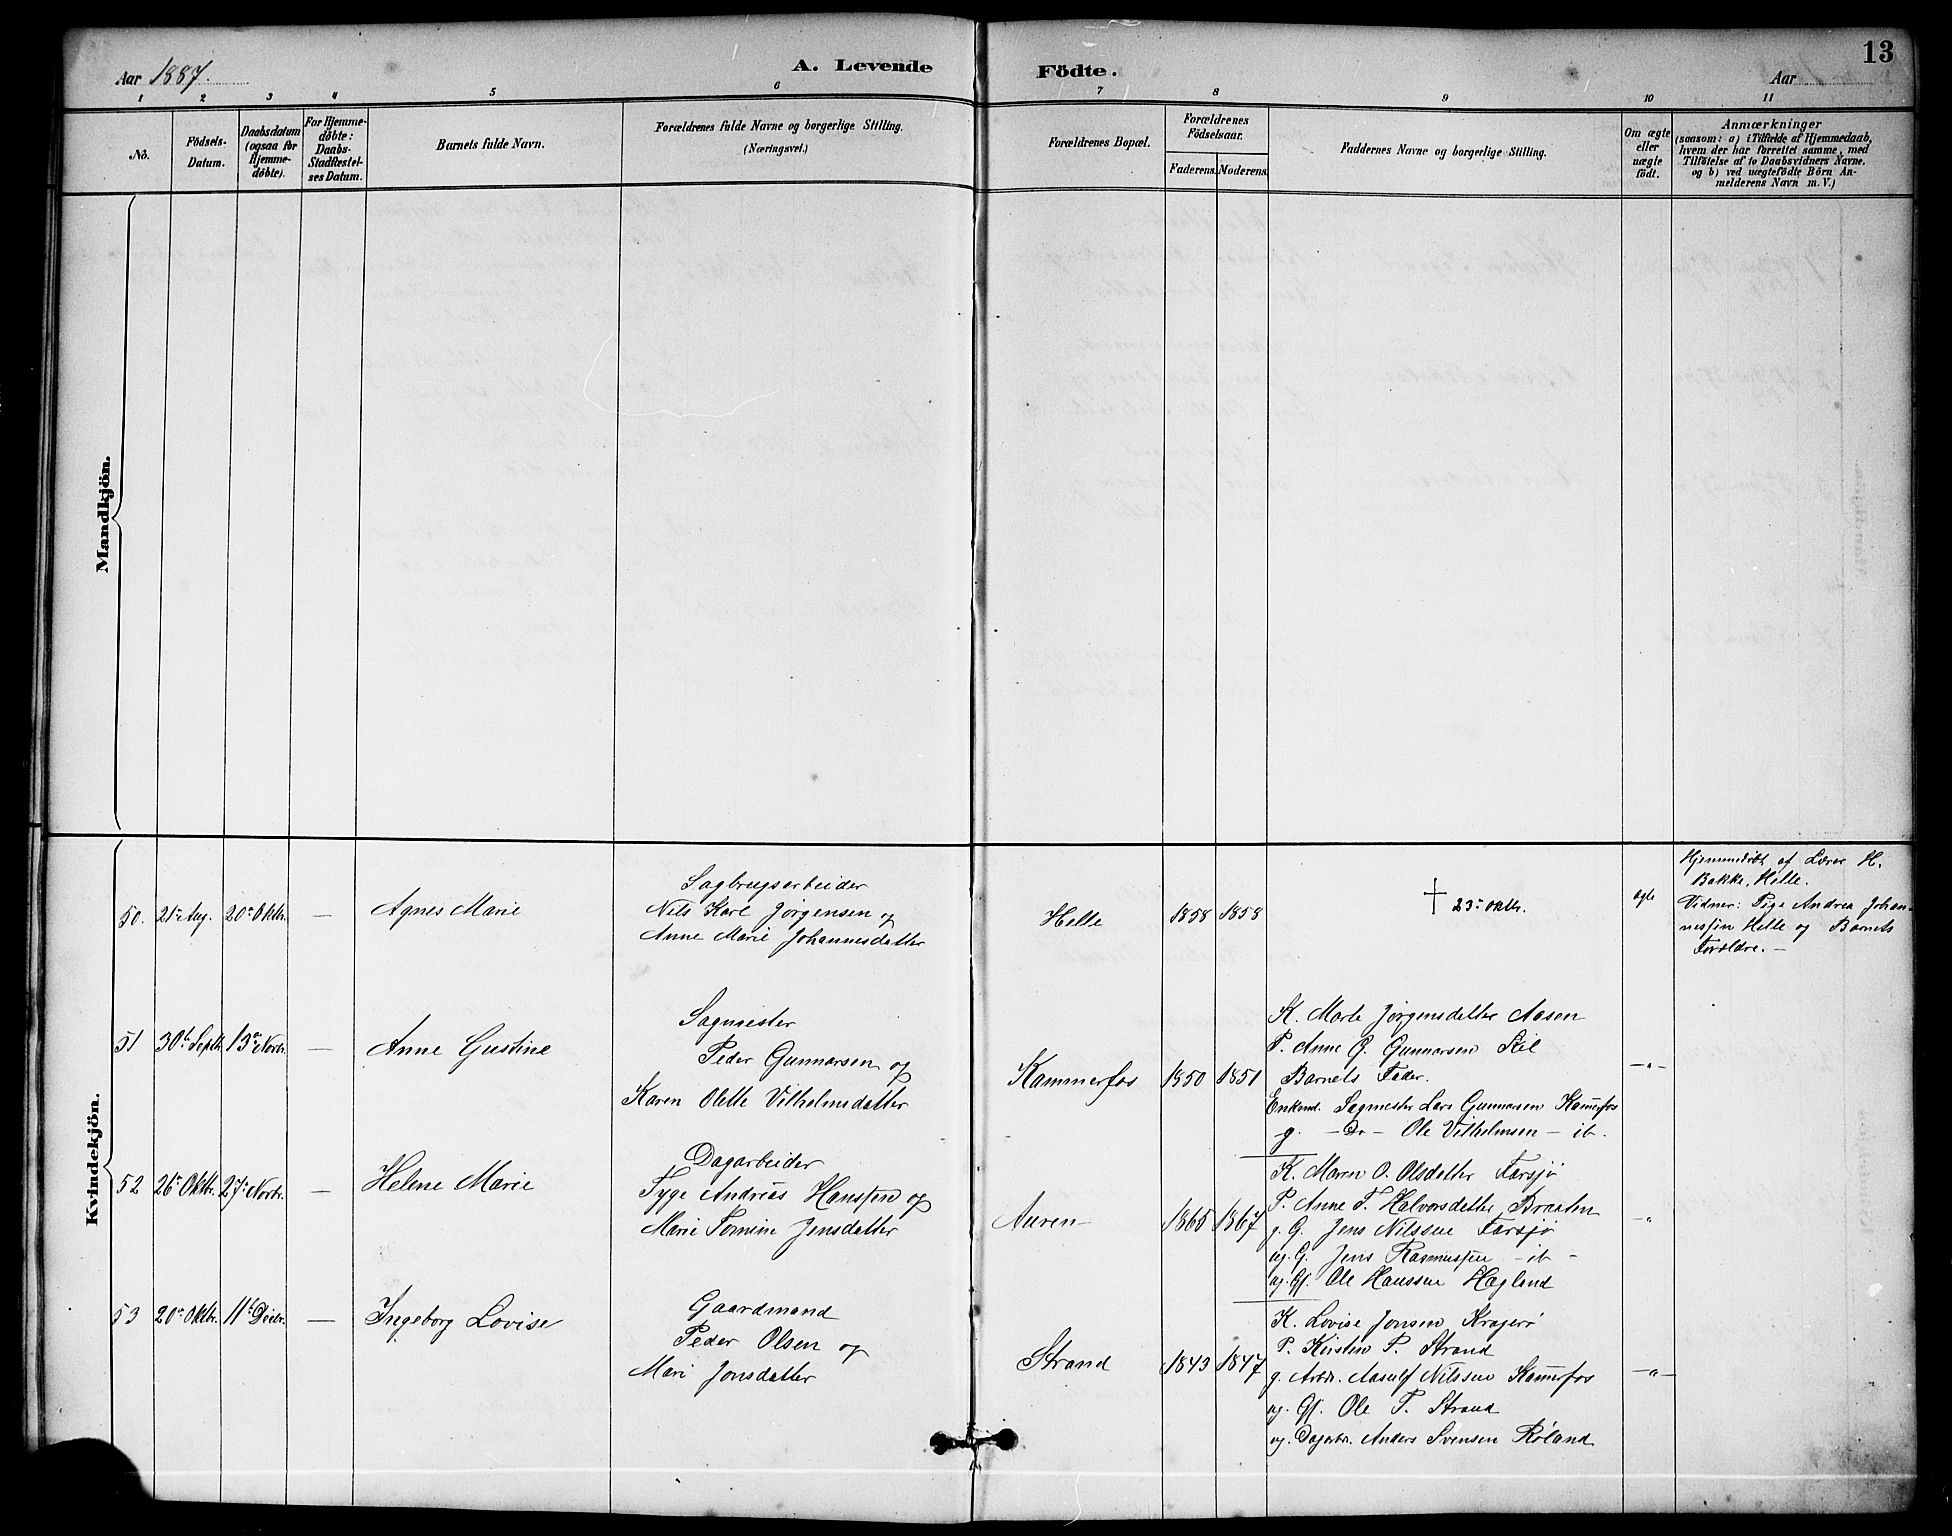 Aar 1887.
A. Levende
Födte.
Aar
13
1 2 3 4 5 6 7 8 9 10 11
No.
Födsels-Datum.
Daabsdatum (ogsaa for Hjemme-döbte).
For Hjemme-döbte: Daabs-Stadfæstel-ses Datum.
Barnets fulde Navn.
Forældrenes fulde Navne og borgerlige Stilling.
(Næringsvei.)
Forældrenes Bopæl.
Forældrenes Födselsaar.
Faderens. Moderens.
Faddernes Navne og borgerlige Stilling.
Om ægte eller uægte födt.
Anmærkninger
(saasom: a) i Tilfælde af Hjemmedaab,
hvem der har forrettet samme, med
Tilföielse af to Daabsvidners Navne.
og b) ved uægtefödte Börn An-
melderens Navn m. V.)
Mandkjön.
Kvindekjön.
50. 21de Aug. 20de Oktbr. — Agnes Marie
Sagbrugsarbeider
Nils Karl Jørgensen og
Anne Marie Johannesdatter
Helle 1858 1858
† 23de Oktbr.
ægte
Hjemmedöbt af Lærer H.
Bakke, Helle.
Vidner: Pige Andrea Johan-
nessen Helle og Barnets
Forældre. —
51 30te Septbr. 13de Novbr. — Anne Gustine
Sagmester
Peder Gunnarsen og
Karen Olette Vilhelmsdatter
Kammerfos 1850 1851
K. Marte Jørgensdatter Aasen
P. Anne G. Gunnarsen Stil
Barnets Fader.
Enkemd. Sagmester Lars Gunnarsen Kammerfos
g. — Do — Ole Vilhelmsen — ib.
—"—
52 26de Oktbr. 27de Novbr. — Helene Marie
Dagarbeider
Tyge Andreas Hanssen og
Marie Tomine Jensdatter
Auren 1865 1867
K. Maren O. Olsdatter Farsjø
P. Anne T. Halvorsdatter Braaten
g. G. Jens Nilssen Farsjø
ug. G. Jens Rasmussen — ib —
ug. Gf. Ole Hanssen Hægland
—"
53 20de Oktbr. 11te Decbr. — Ingeborg Lovise
Gaardmand
Peder Olsen og
Mari Jonsdatter
Strand 1843 1847
K. Lovise Jonsen Kragerø
P. Kirsten P. Strand
g. Arbdr. Aasulf Nilssen Kammerfos
ug. Gf. Ole P. Strand
ug. Dagarbr. Anders Svensen Røland
—"—